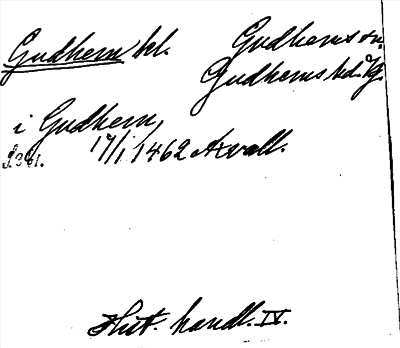 Gudhem kl. Gudhems sn.
Gudhems hd. Vg.
i Gudhem
17/1 1462 Axvall.
S. 361.
Hist. handl. IV.